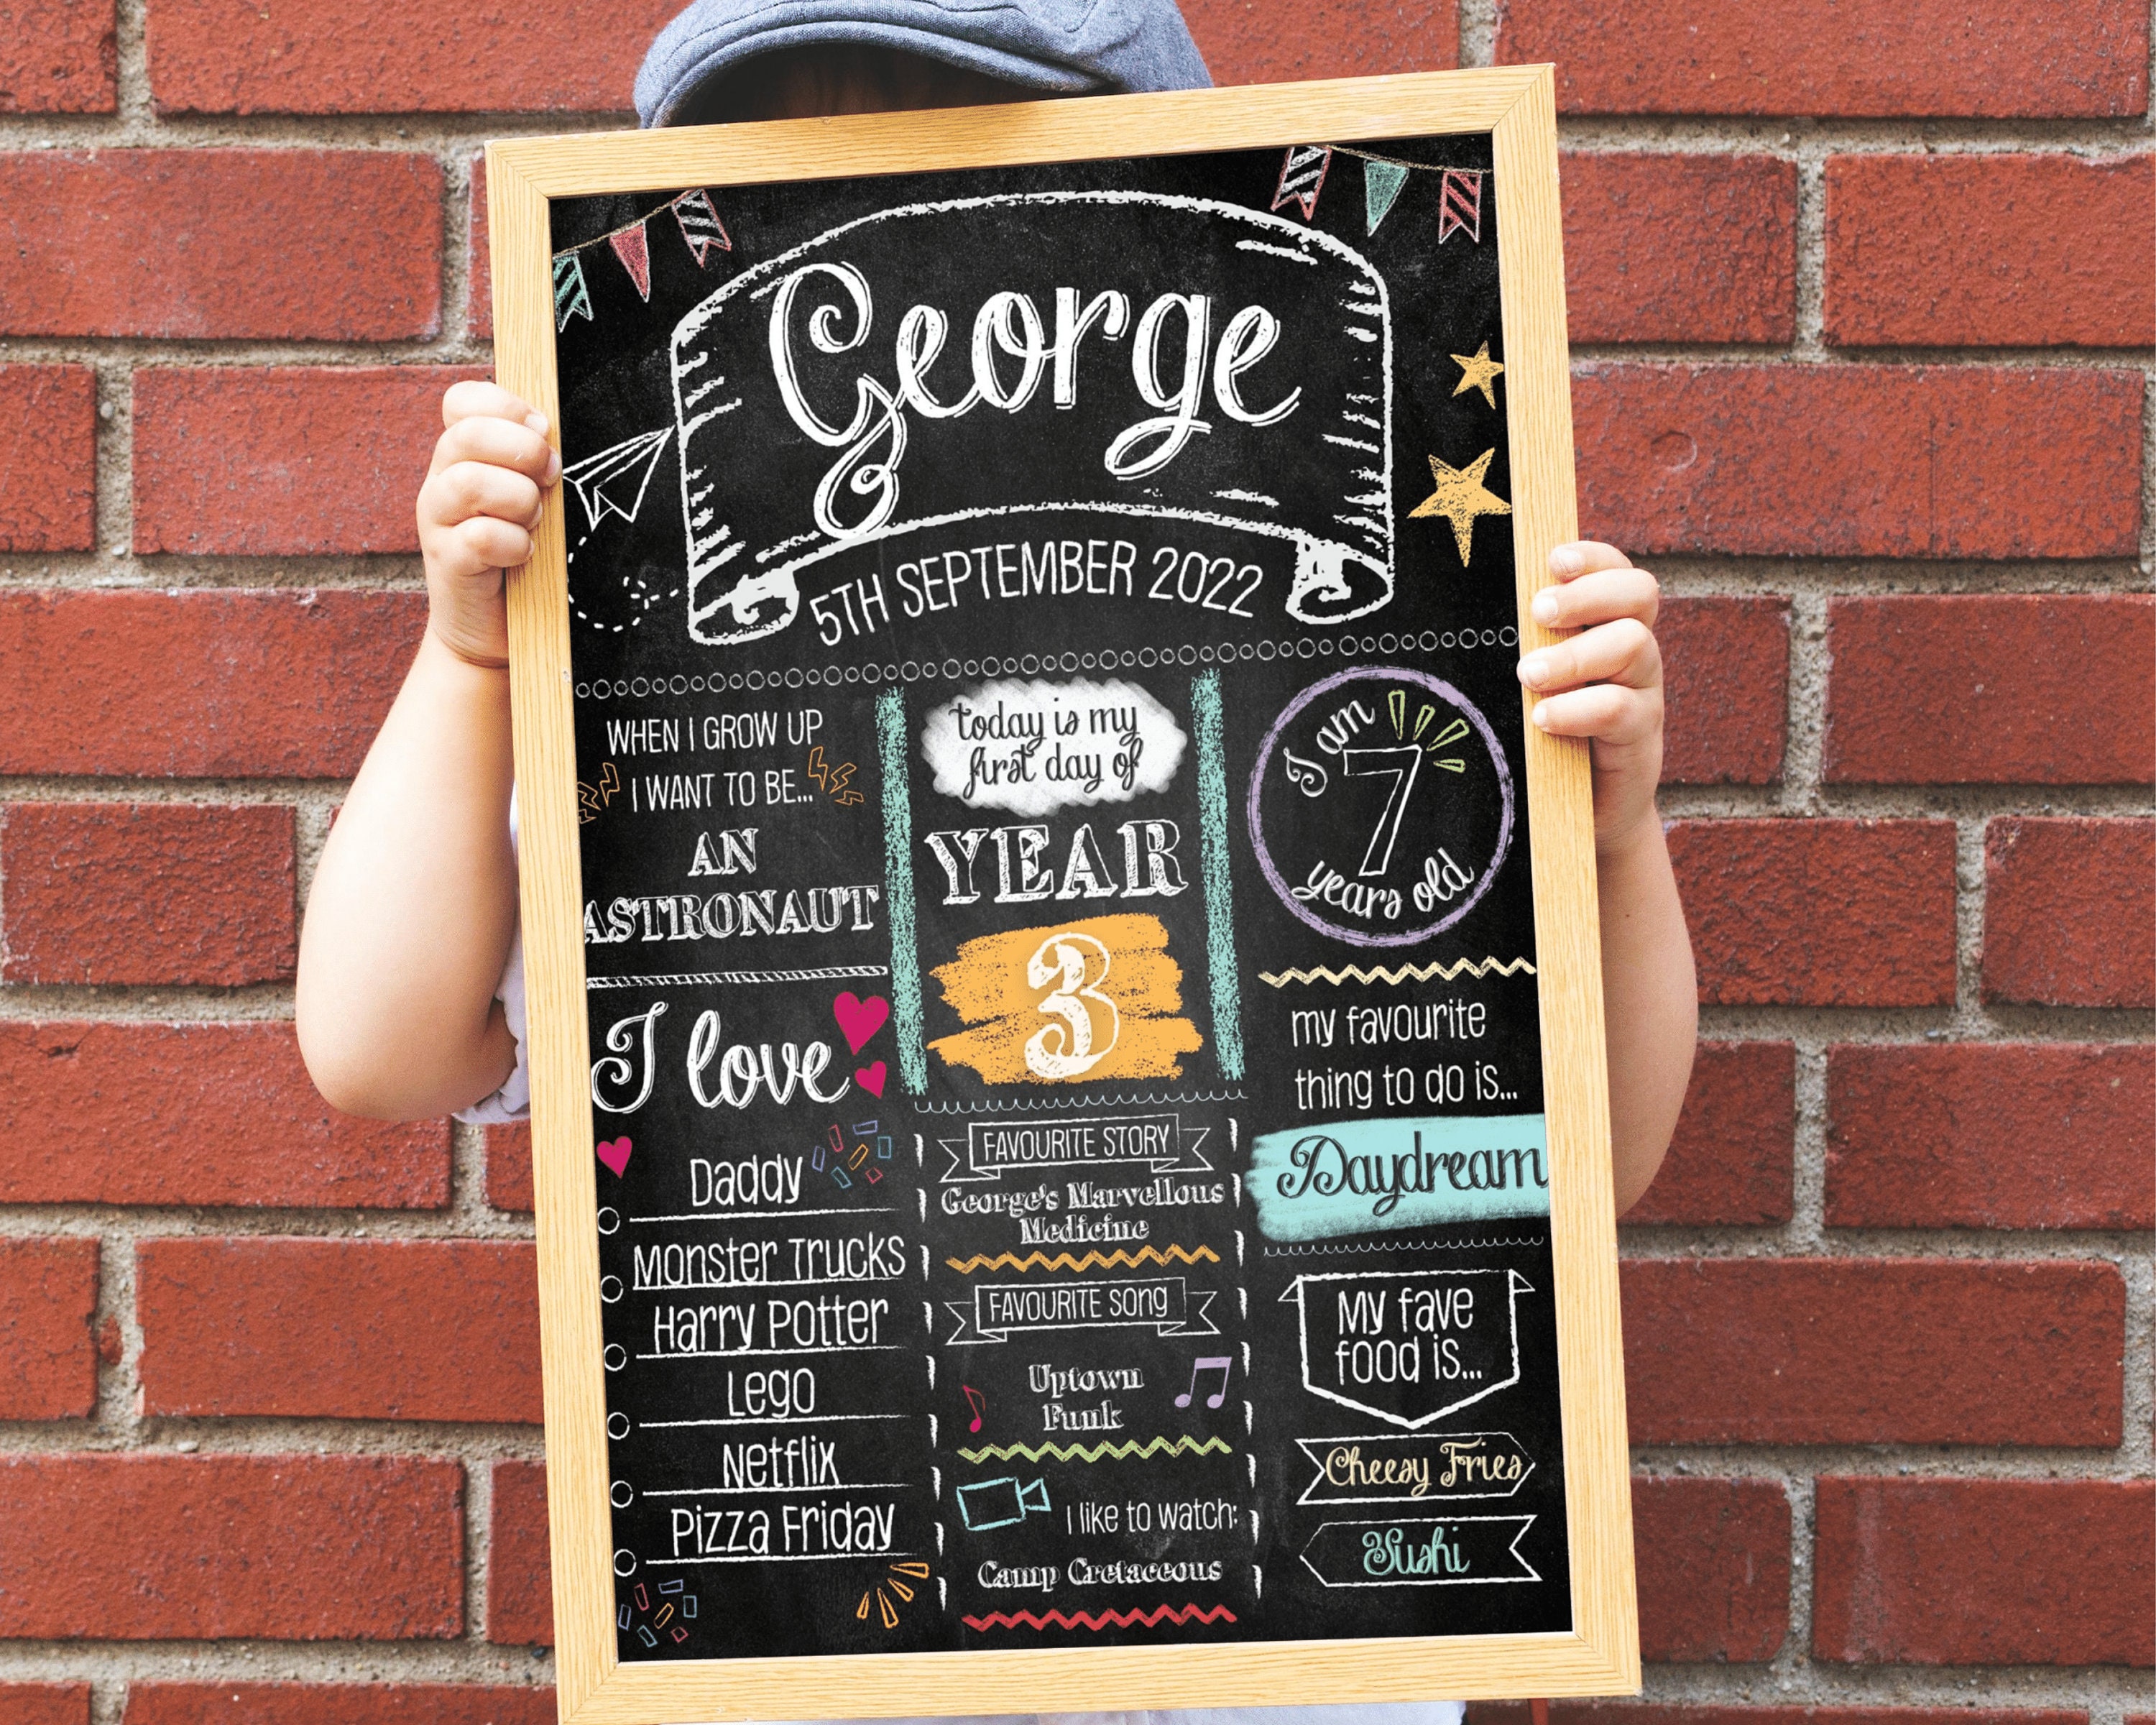 George
5TH SEPTEMBER 2022
WHEN I GROW UP
I WANT TO BE...
AN
ASTRONAUT
I love
Daddy
Monster Trucks
Harry Potter
Lego
Netflix
Pizza Friday
today is my
first day of
YEAR
3
FAVOURITE STORY
George's Marvellous
Medicine
FAVOURITE SONG
Uptown
Funk
I like to watch:
Camp Cretaceous
I am
7
years old
my favourite
thing to do is...
Daydream
My fave
food is...
Cheesy Fries
Sushi